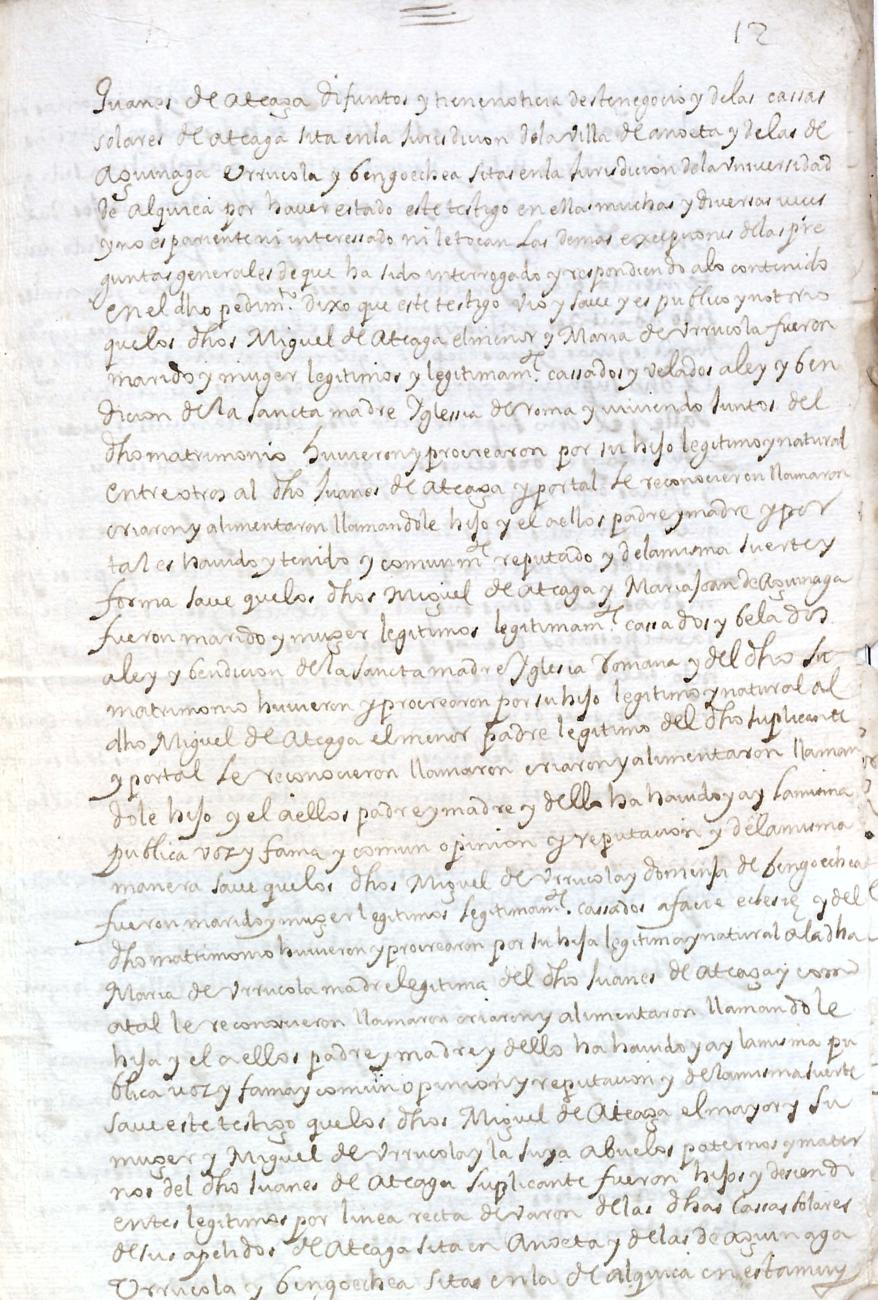 12
Juanes de Ateaga difuntos y tiene noticia deste negocio y de las cassas
solares de Ateaga sita en la Jurisdicion de la villa de anoeta y de las de
Aguinaga Vrrucola y bengoechea sitas en la Jurisdicion de la Vniversidad
de Alquica por haver estado este testigo en ellas muchas y diversas veces
y no es pariente ni interessado ni le tocan las demas excepciones de las pre
guntas generales de que ha sido interrogado y respondiendo a lo contenido
en el dho pedimto. dixo que este testigo vio y save y es publico y notorio
que los dhos Miguel de Ateaga el menor y Maria de Vrrucola fueron
marido y muger legitimos y legitimamte. cassados y velados a ley y ben
dicion de la sancta madre Iglesia de roma y viviendo Juntos del
dho matrimonio huvieron y procrearon por su hijo legitimo y natural
entre otros al dho Juanes de Ateaga y por tal le reconocieron llamaron
criaron y alimentaron llamandole hijo y el a ellos padre y madre y por
tal es havido y tenido y comunmte reputado y de la misma suerte y
forma save que los dhos Miguel de Ateaga y Maria Joan de Aguinaga
fueron marido y muger legitimos legitimamte. cassados y belados
a ley y bendicion de la sancta madre Iglesia romana y del dho su
matrimonio huvieron y procrearon por su hijo legitimo y natural al
dho Miguel de Ateaga el menor padre legitimo del dho suplicante
y por tal le reconocieron llamaron criaron y alimentaron llaman
dole hijo y el a ellos padre y madre y dello ha havido y ay la misma
publica voz y fama y comun opinion y reputacion y de la misma
manera save que los dhos Miguel de Vrrucola y domenja de bengoechea
fueron marido y muger legitimos legitimamte. cassados a facie eclesie y del
dho matrimonio huvieron y procrearon por su hija legitima y natural a la dha
Maria de Vrrucola madre legitima del dho Juanes de Ateaga y como
a tal le reconocieron llamaron criaron y alimentaron llamandole
hija y el a ellos padre y madre y dello ha havido y ay la misma pu
blica voz y fama y comun opinion y reputacion y de la misma suerte
save este testigo que los dhos Miguel de Ateaga el mayor y su
muger y Miguel de Vrrucola y la suya abuelos paternos y mater
nos del dho Juanes de Ateaga suplicante fueron hijos y descendi
entes legitimos por linea recta de varon de las dhas Cassas solares
de sus apelidos de Ateaga sita en Anoeta y de las de aguinaga
Vrrucola y bengoechea sitas en la de alquica en esta muy